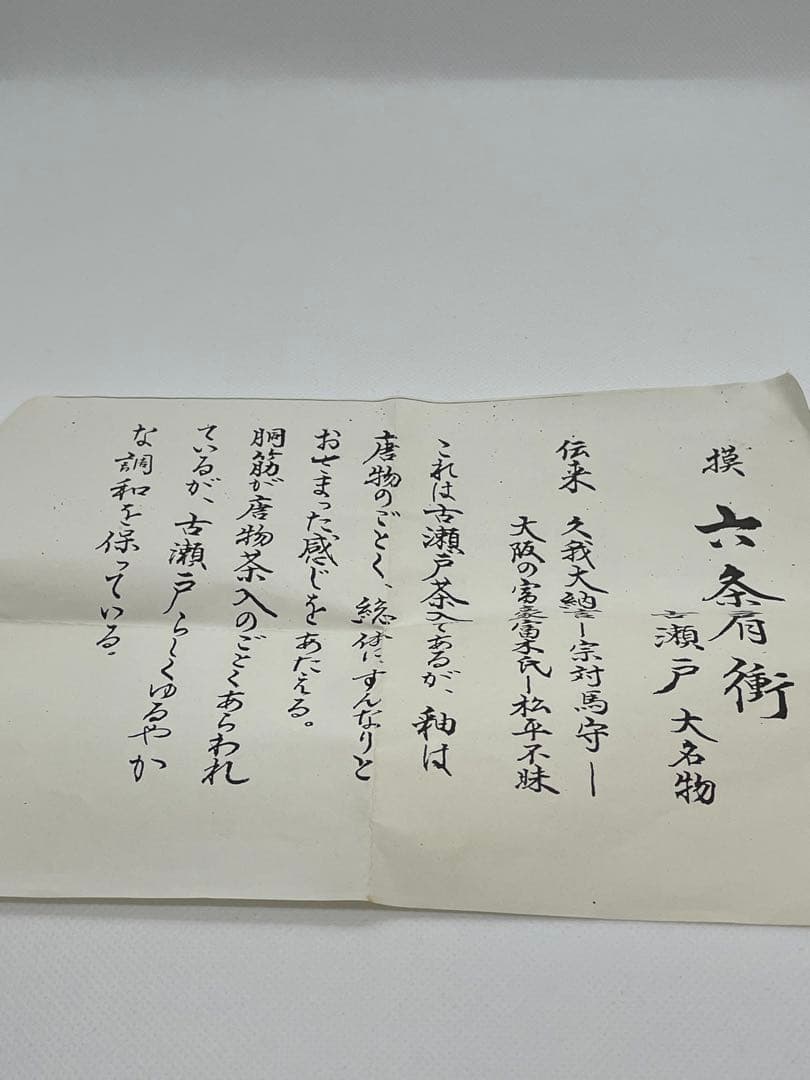 摸 六条肩衝
古瀬戸 大名物
伝来 久我大納言ー宗対馬守ー
大阪の富豪富木氏ー松平不昧
これは古瀬戸茶入であるが、釉は
唐物のごとく、総体にすんなりと
おさまった感じをあたえる。
胴筋が唐物茶入のごとくあらわれ
ているが、古瀬戸らしくゆるやか
な調和を保っている。